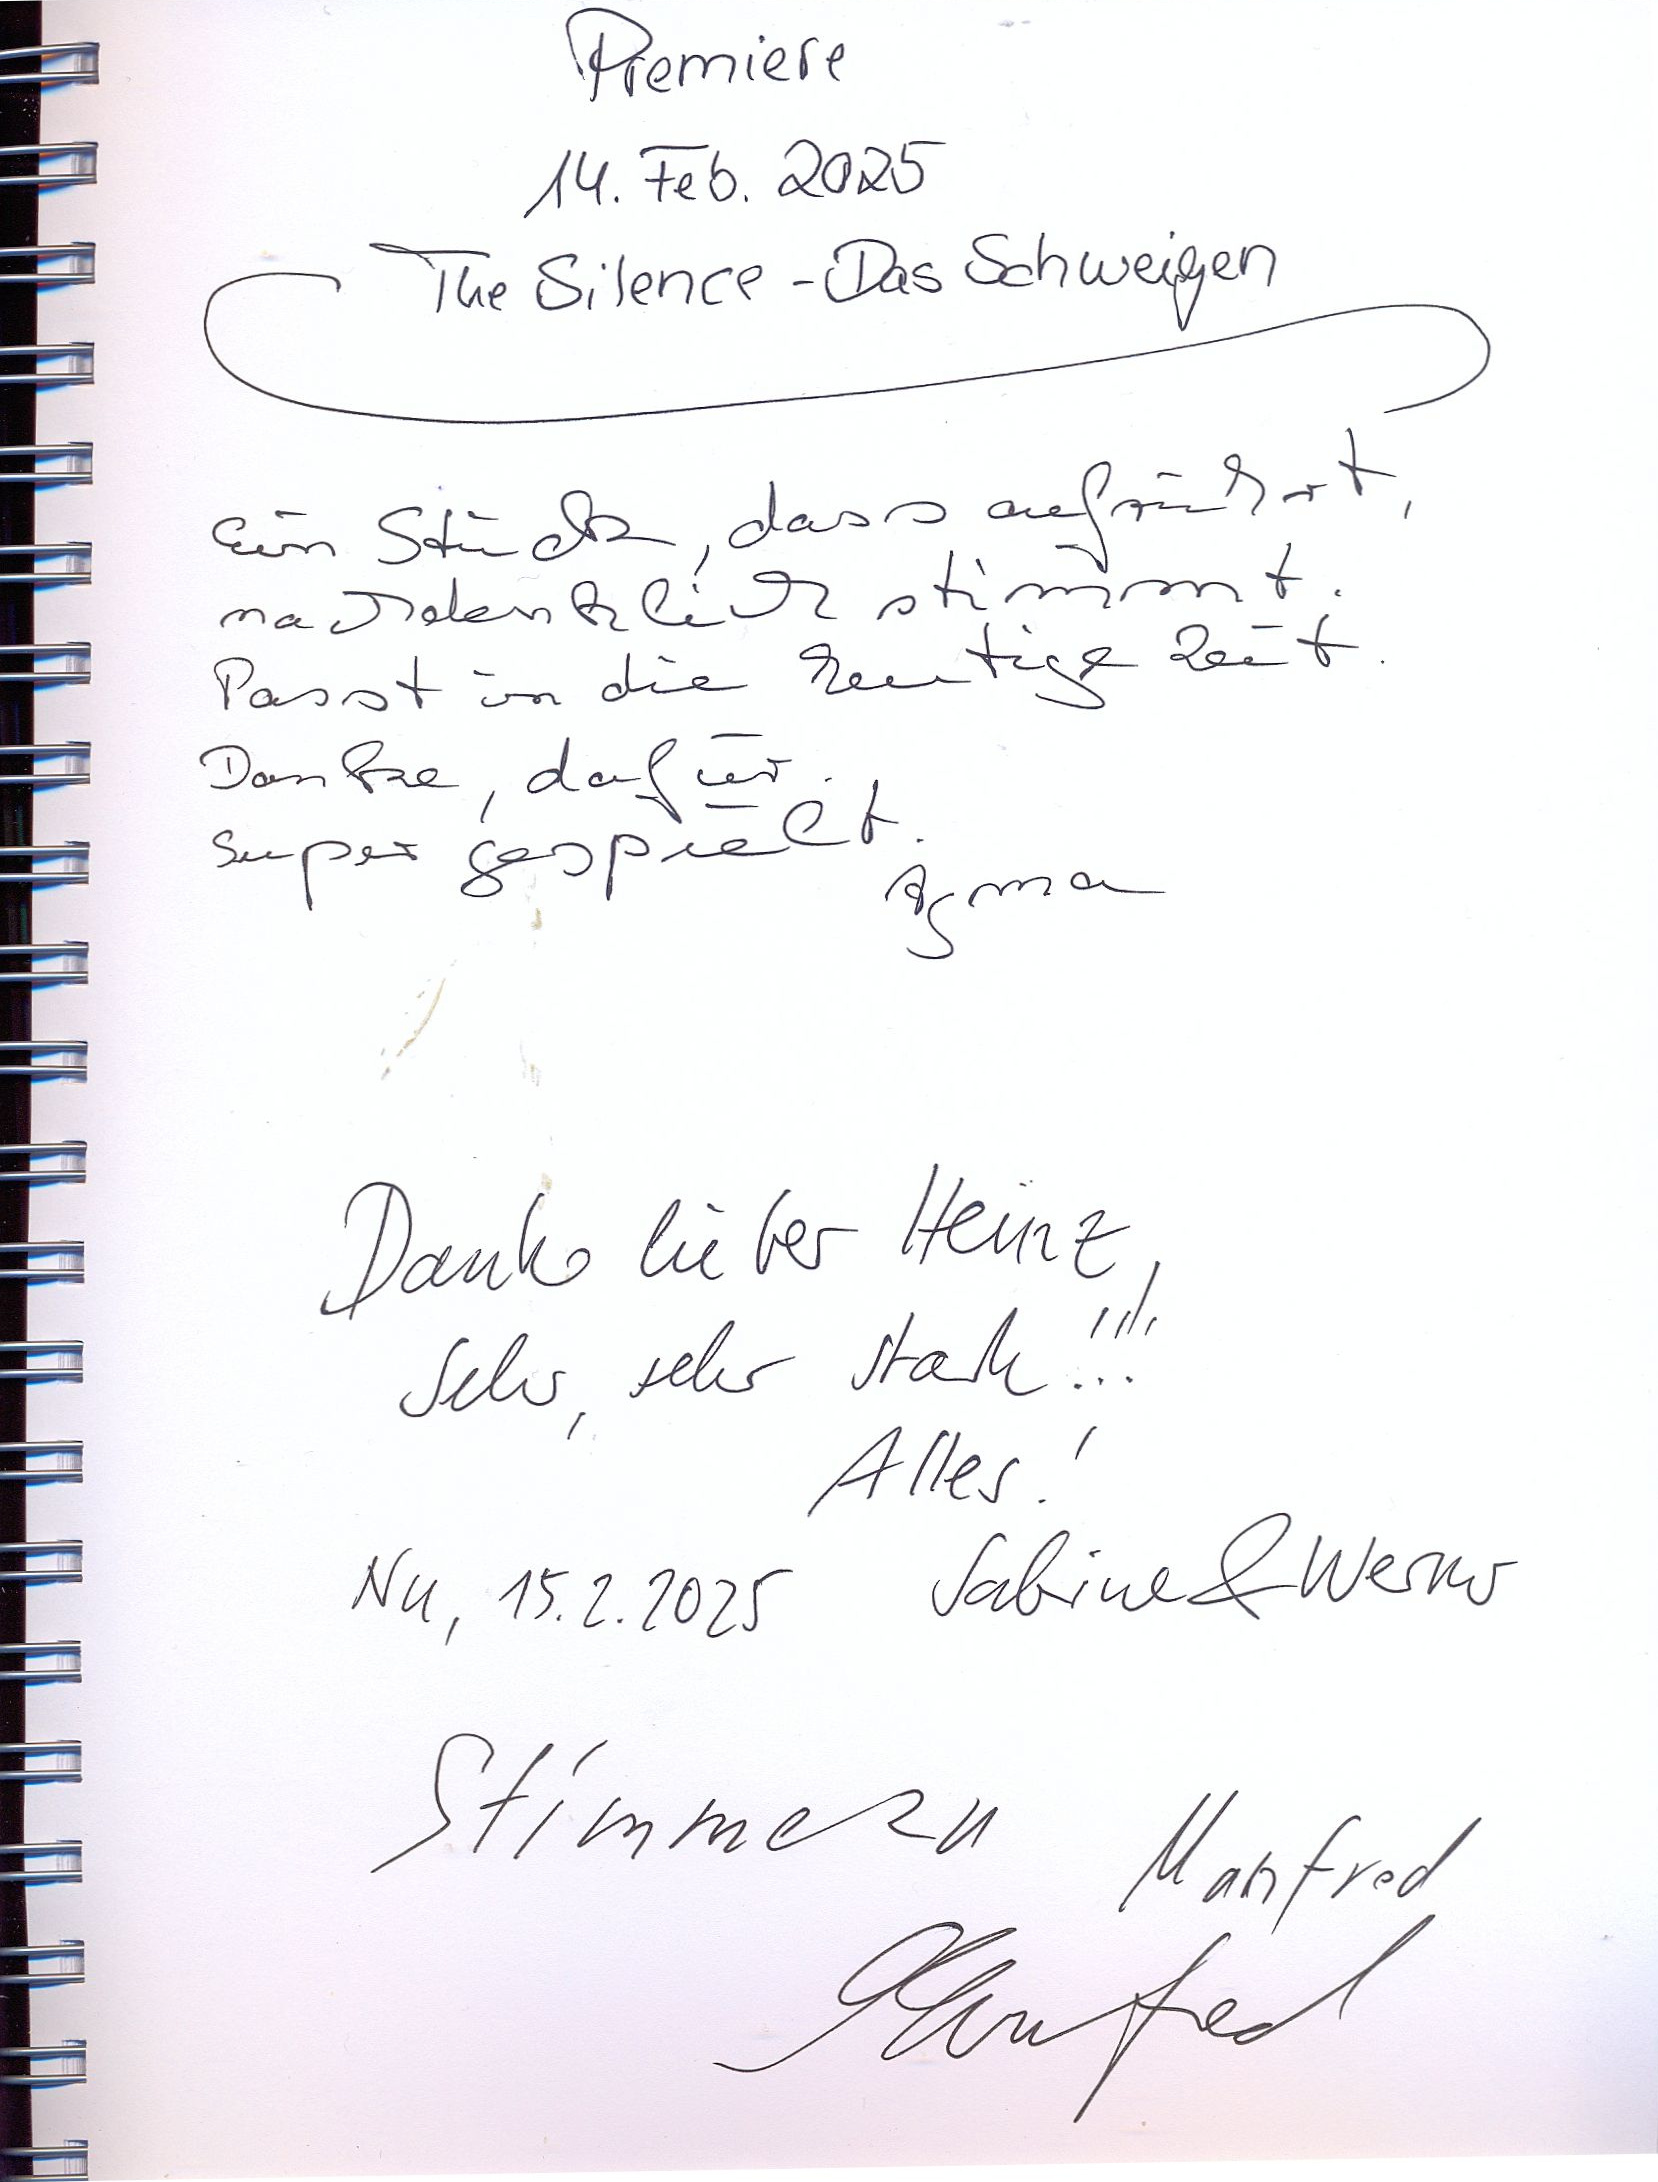 Premiere
14. Feb. 2025
The Silence - Das Schweigen
Ein Stück, dass aufrührt,
nachdenklich stimmt.
Passt in die heutige Zeit.
Danke, dafür.
Super gespielt.
Danke lieber Heinz,
Sehr, sehr stark!!!
Alles!
Nu, 15.2.2025 Sabine & Werner
Stimme zu
Manfred
Manfred